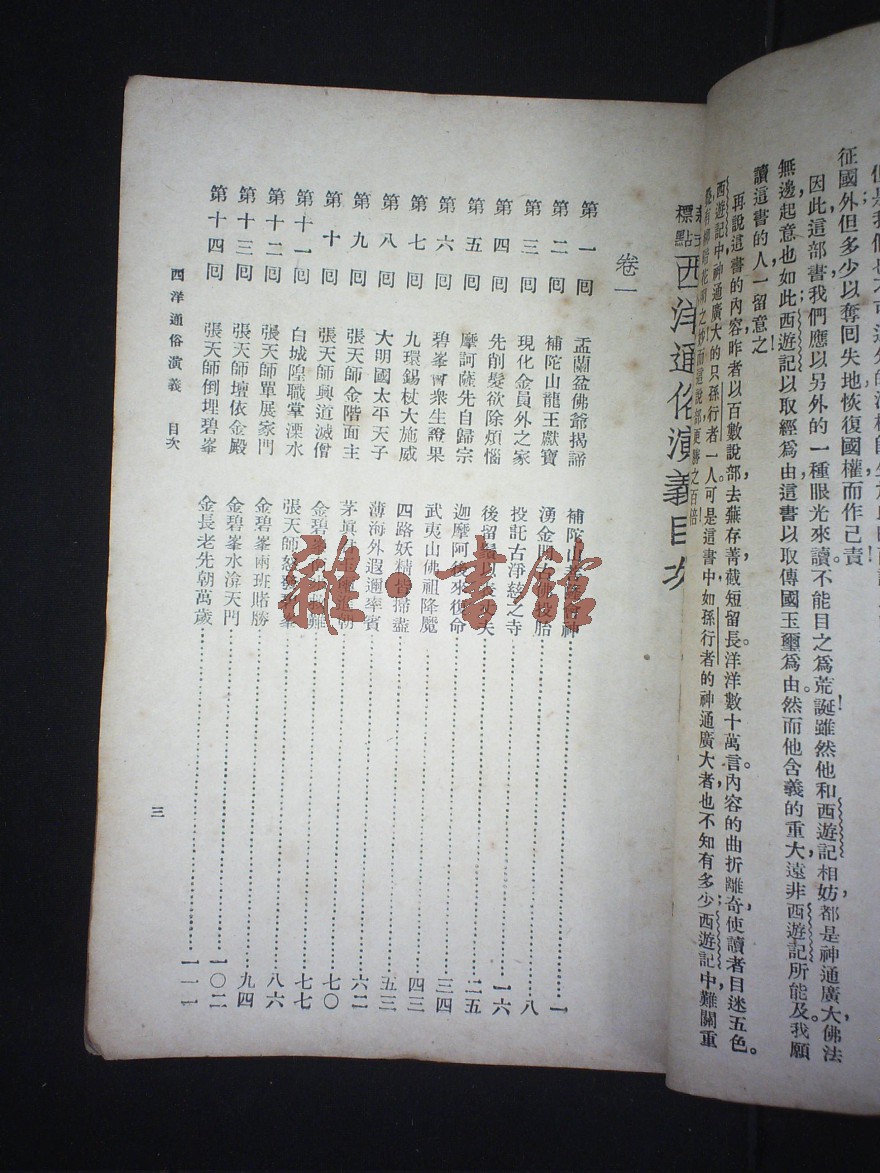 征國外但多少以奪回失地恢復國權而作己責
因此這部書我們應以另外的一種眼光來讀不能目之爲荒誕雖然他和西遊記相妨都是神通廣大佛法
無邊起意也如此西遊記以取經爲由這書以取傳國玉璽爲由然而他含義的重大遠非西遊記所能及我願
讀這書的人一留意之
再說這書的內容昨者以百數說部去蕪存菁截短留長洋洋數十萬言內容的曲折離奇使讀者目迷五色。
西遊記中神通廣大的只孫行者一人可是這書中如孫行者的神通廣大者也不知有多少西遊記中難關重
西洋通俗演義目次
卷一
第一回 盂蘭盆佛爺揭諦 補陀山 神 一
第二回 補陀山龍王獻寶 湧金門古佛投胎 八
第三回 現化金員外之家 投託古淨慈之寺 一六
第四回 先削髮欲除煩惱 後留 夫 二五
第五回 摩訶薩先自歸宗 迦摩阿後來復命 三四
第六回 碧峯會衆生證果 武夷山佛祖降魔 四三
第七回 九環錫杖大施威 四路妖精皆掃盡 五三
第八回 大明國太平天子 薄海外遐邇率賓 六二
第九回 張天師金階面主 茅眞 朝 七〇
第十回 張天師興道滅僧 金碧峯 難 七七
第十一回 白城隍職掌溧水 張天師怒 峯 八六
第十二回 張天師單展家門 金碧峯兩班賭勝 九四
第十三回 張天師壇依金殿 金碧峯水渰天門 一〇二
第十四回 張天師倒埋碧峯 金長老先朝萬歲 一一一
西洋通俗演義 目次
三
雜·書館